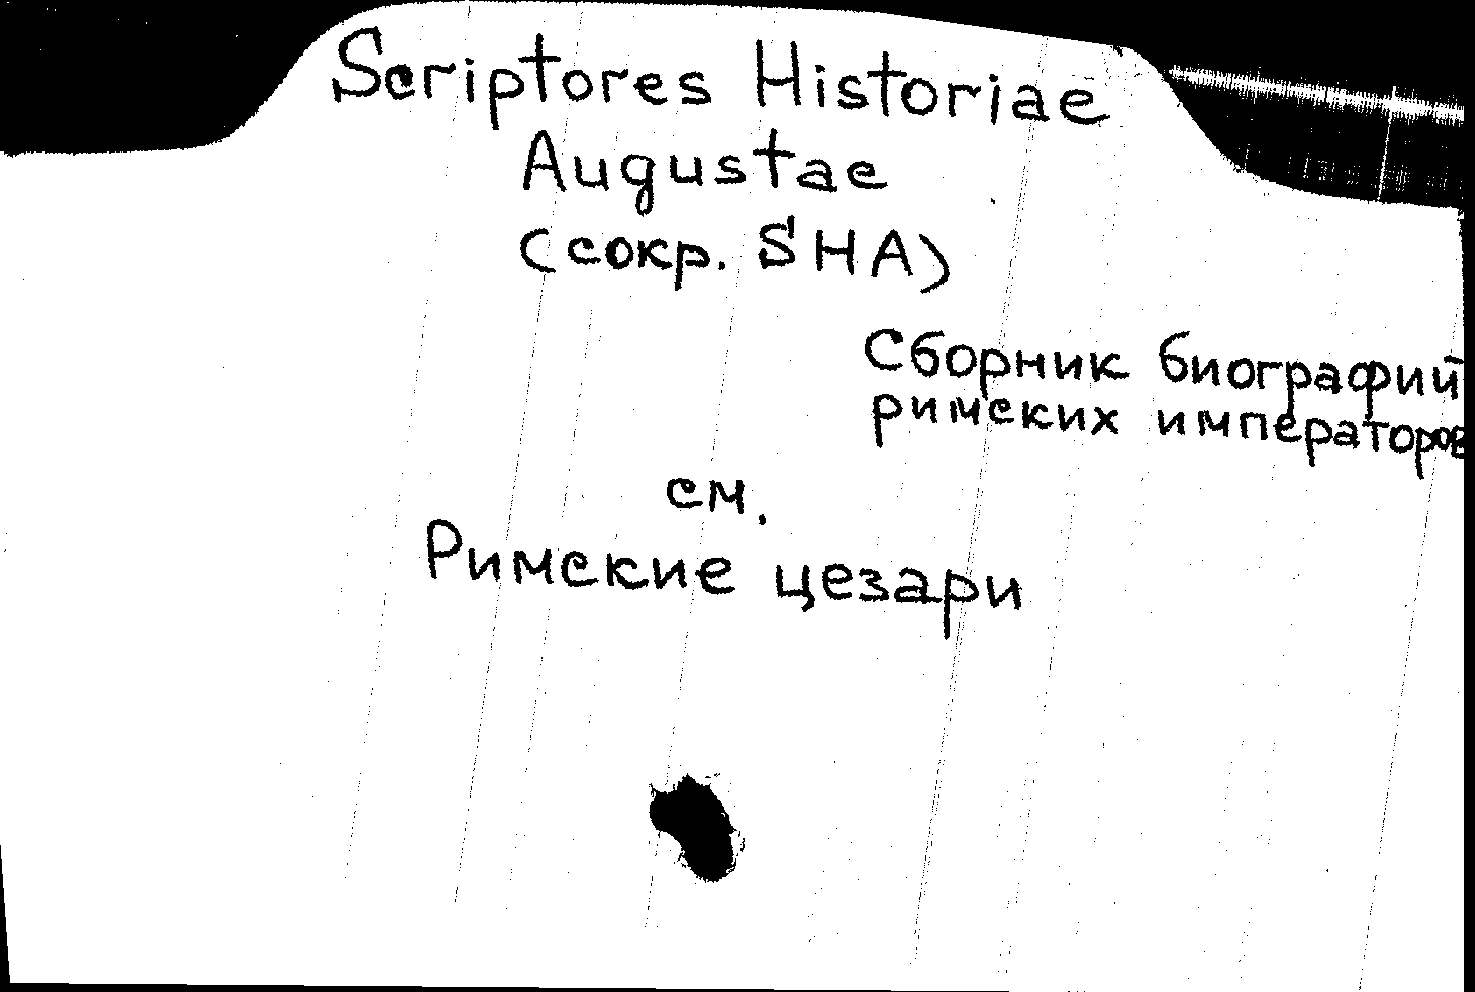 Scriptores Historiae
Augustae
(сокр. SHA)
Сборник биографий
римских императоров
см.
Римские цезари